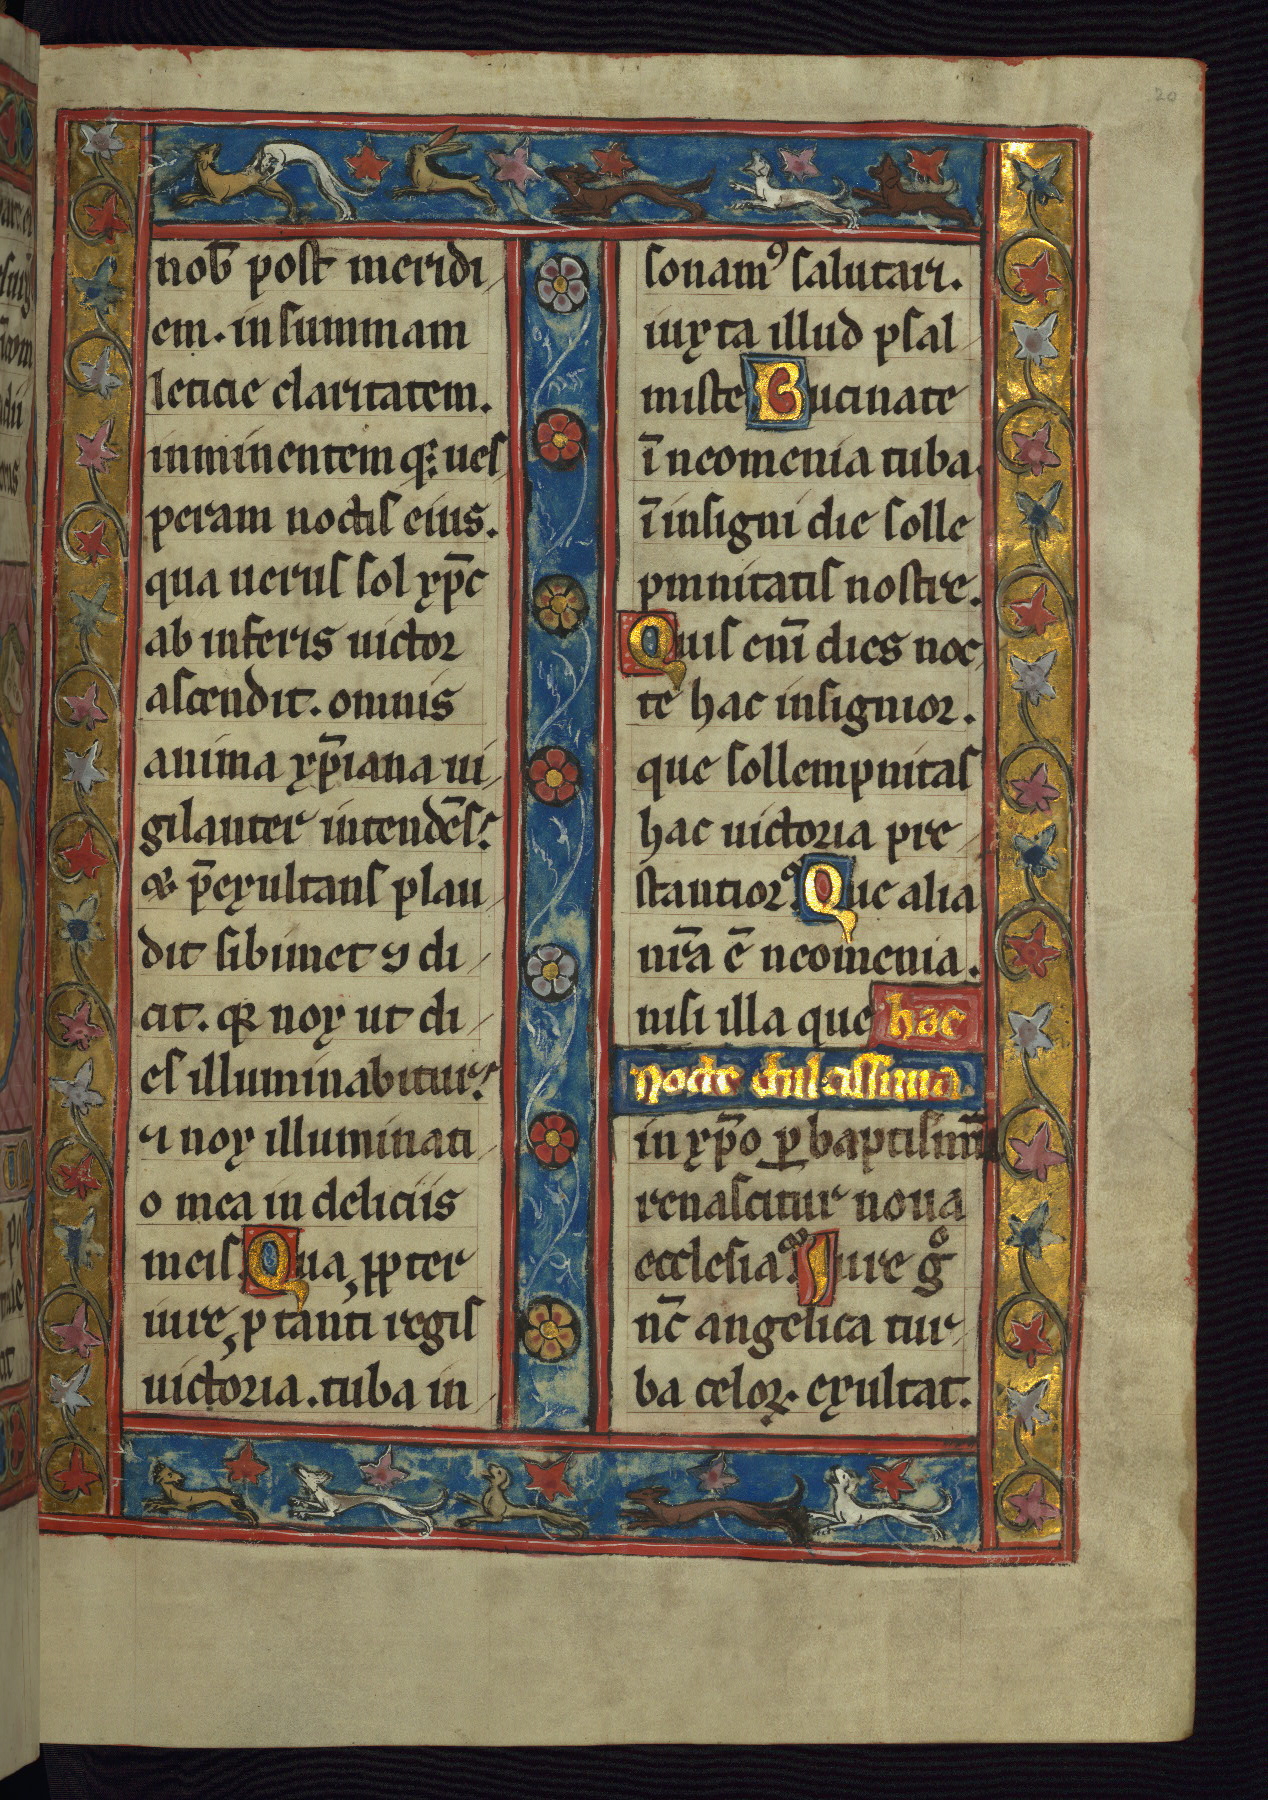 20
nob̄ post meridi
em. in summam
leticie claritatem.
inminentem q; ues
peram noctis eius.
qua uerus sol xp̄c
ab inferis uictor
ascendit. omnis
anima xp̄iana ui
gilanter intendēs?
& p̄exultans plau
dit sibimet ꝯ di
cit. qꝛ nox ut di
es illuminabitur?
⁊ nox illuminati
o mea in deliciis
meis. Qua ꝓpter
iure, ꝓ tanti regis
uictoria. tuba in
sonamꝰ salutari.
iuxta illud psal
miste Bucinate
ī neomenia tuba.
ī insigni die solle
pmnitatis nostre.
Quis enī dies noc
te hac insignior.
que sollempnitas
hac uictoria pre
stantior? Que alia
nr̄a ē neomenia.
nisi illa que hac
nocte dulcissima
in xp̄o ꝑ baptismū
renascitur noua
ecclesia? Iure gͦ
nc̄ angelica tur
ba celoꝝ. exultat.